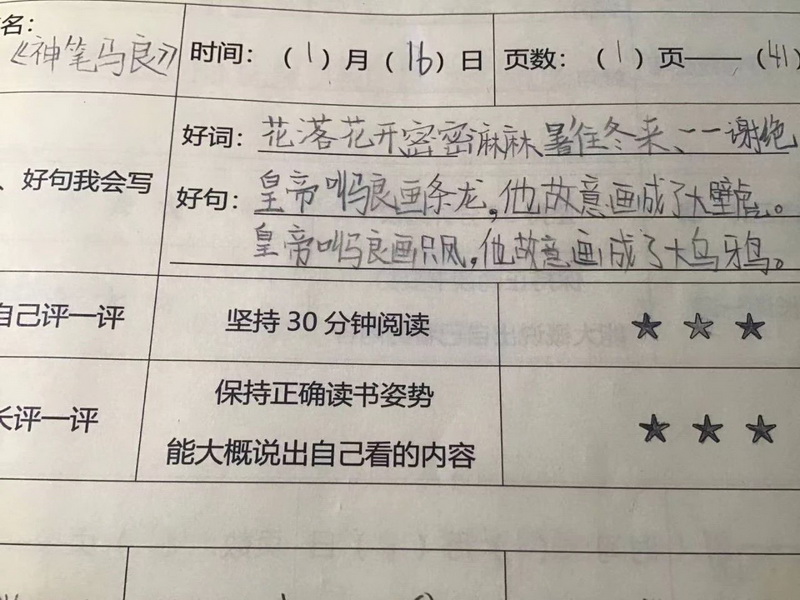 名：
《神笔马良》 时间：（1）月（16）日 页数：（1）页——（41）
好词：花落花开、密密麻麻、暑往冬来、一一谢绝
、好句我会写
好句：皇帝叫马良画条龙，他故意画成了大壁虎。
皇帝叫马良画只凤，他故意画成了大乌鸦。
自己评一评 坚持 30 分钟阅读 ★ ★ ★
长评一评 保持正确读书姿势
能大概说出自己看的内容 ★ ★ ★